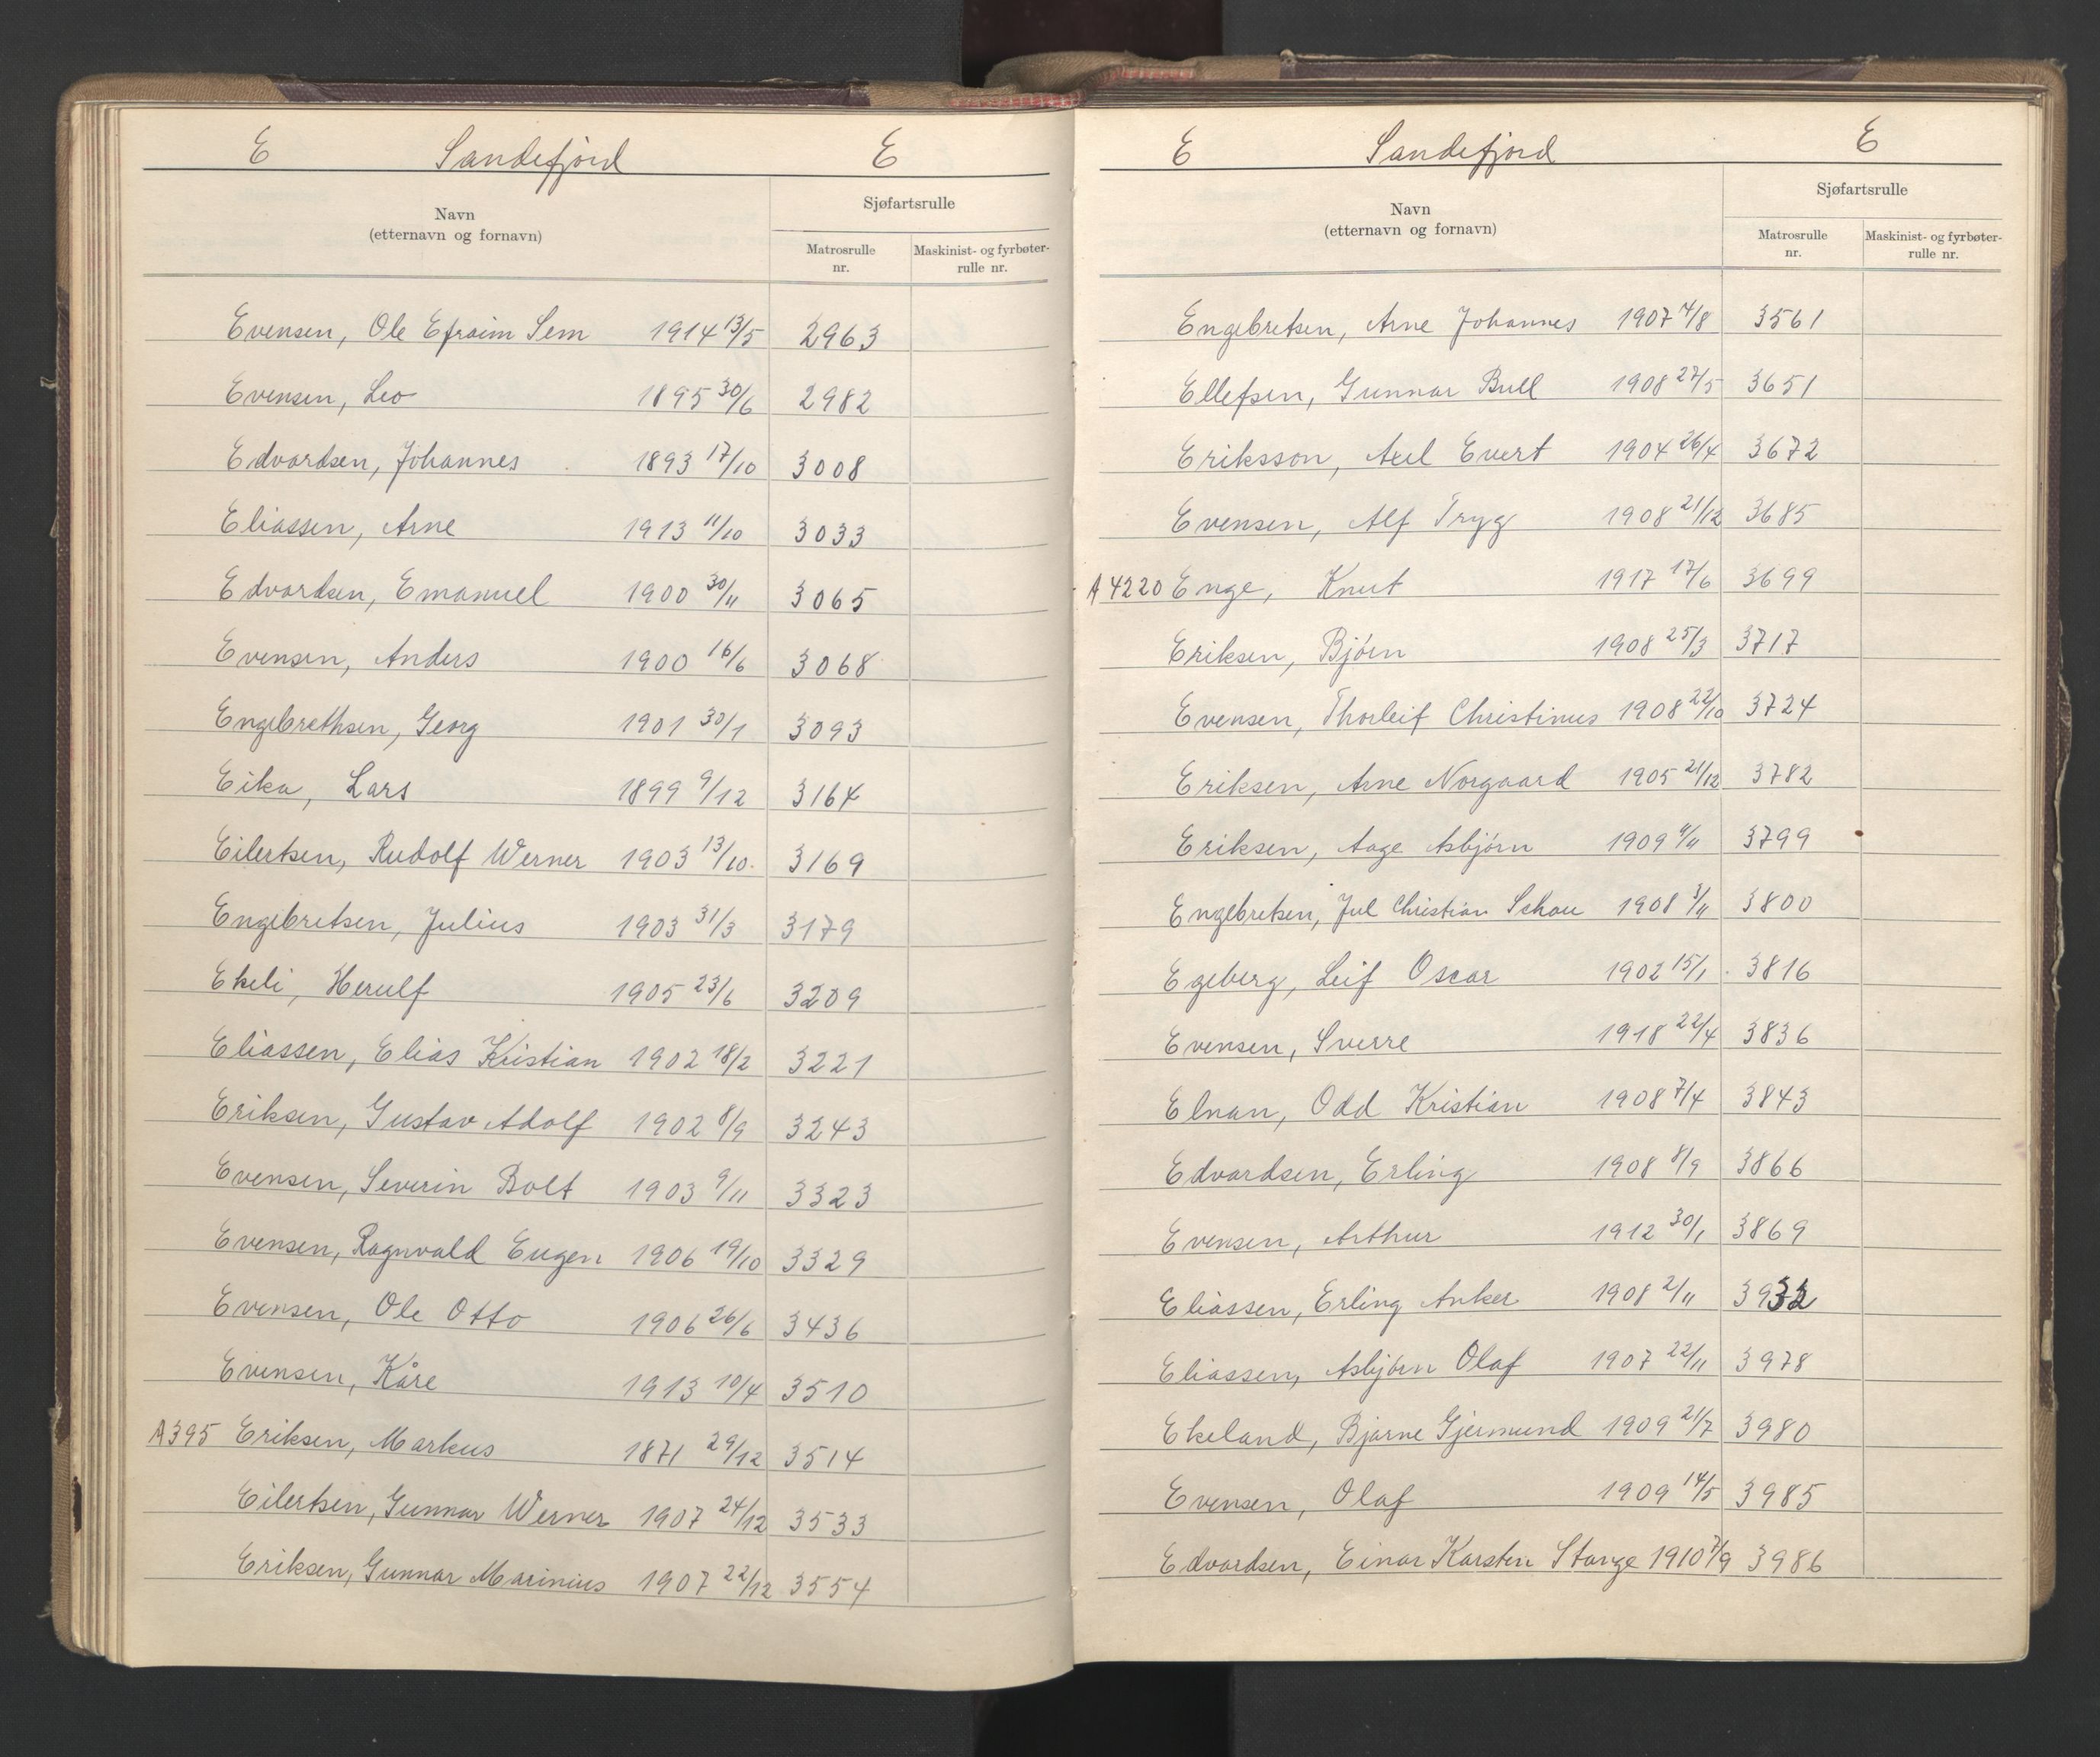 E Sandefjord E
Navn
(etternavn og fornavn)
Sjøfartsrulle
Matrosrulle nr.
Maskinist- og fyrbøter-rulle nr.
Evensen, Ole Efraim Sem 1914 13/5 2963
Evensen, Leo 1895 30/6 2982
Edvardsen, Johannes 1893 17/10 3008
Eliassen, Arne 1913 11/10 3033
Edvardsen, Emanuel 1900 30/11 3065
Evensen, Anders 1900 16/6 3068
Engebrethsen, Georg 1901 30/1 3093
Eika, Lars 1899 9/12 3164
Eilertsen, Rudolf Werner 1903 13/10. 3169
Engebretsen, Julius 1903 31/3 3179
Ekeli, Herulf 1905 23/6 3209
Eliassen, Elias Kristian 1902 18/2 3221
Eriksen, Gustav Adolf 1902 8/9 3243
Evensen, Severin Bolt 1903 9/11 3323
Evensen, Ragnvald Eugen 1906 19/10 3329
Evensen, Ole Otto 1906 26/6 3436
Evensen, Kåre 1913 10/4 3510
A395 Eriksen, Markus 1871 29/12 3514
Eilertsen, Gunnar Werner 1907 24/12 3533
Eriksen, Gunnar Marinius 1907 22/12 3554
E Sandefjord E
Navn
(etternavn og fornavn)
Sjøfartsrulle
Matrosrulle nr.
Maskinist- og fyrbøter-rulle nr.
Engebretsen, Arne Johannes 1907 4/8 3561
Ellefsen, Gunnar Bull 1908 27/5 3651
Eriksson, Axel Evert 1904 26/4 3672
Evensen, Alf Tryg 1908 21/12 3685
A4220 Enge, Knut 1917 17/6 3699
Eriksen, Bjørn 1908 25/3 3717
Evensen, Thorleif Christinus 1908 22/10 3724
Eriksen, Arne Norgaard 1905 21/12 3782
Eriksen, Aage Asbjørn 1909 4/11 3799
Engebretsen, Jul Christian Schau 1908 3/11 3800
Egeberg, Leif Oscar 1902 15/1 3816
Evensen, Sverre 1918 22/4 3836
Elnan, Odd Kristian 1908 7/4 3843
Edvardsen, Erling 1908 8/9 3866
Evensen, Arthur 1912 30/1 3869
Eliassen, Erling Anker 1908 2/11 3932
Eliassen, Asbjørn Olaf 1907 22/11 3978
Ekeland, Bjarne Gjermund 1909 21/7 3980
Evensen, Olaf 1909 14/5 3985
Edvardsen, Einar Karsten Stange 1910 7/9 3986